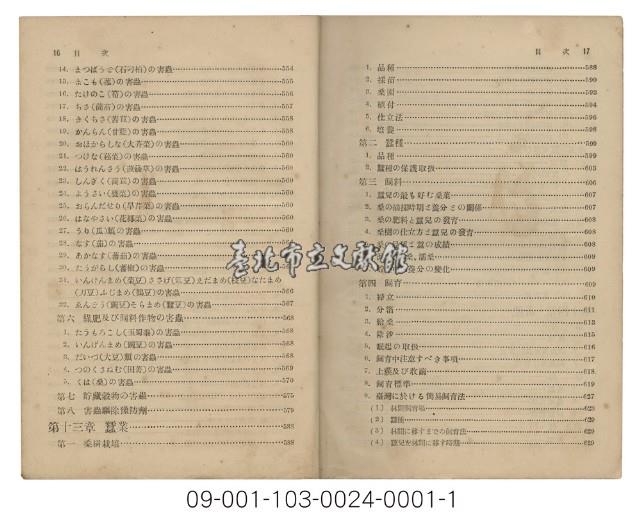 16 目次
14. まつばうど(石刁柏)の害蟲 554
15. まこも(菰)の害蟲 555
16. たけのこ(筍)の害蟲 556
17. ちさ(萵苣)の害蟲
18. きくちさ(苦苣)の害蟲
19. かんらん(甘藍)の害蟲
20. おほからしな(大芥菜)の害蟲 560
21. つけな(菘菜)の害蟲 560
22. はうれんさう(菠薐草)の害蟲 560
23. しんぎく(茼蒿)の害蟲
24. ようさい(蕹菜)の害蟲
25. おらんだせり(旱芹菜)の害蟲
26. はなやさい(花椰菜)の害蟲
27. うり(瓜)類の害蟲
28. なす(茄)の害蟲
29. あかなす(蕃茄)の害蟲
30. たうがらし(蕃椒)の害蟲
(刀豆)ふじまめ(鵲豆)の害蟲
32. ゑんどう(豌豆)そらまめ(蠶豆)の害蟲
第六 綠肥及び飼料作物の害蟲 568
1. たうもろこし(玉蜀黍)の害蟲 568
2. いんげんまめ(菜豆)の害蟲 568
3. だいづ(大豆)類の害蟲 568
4. つのくさねむ(田菁)の害蟲
5. くは(桑)の害蟲 570
第七 貯藏穀物の害蟲 575
第八 害蟲驅除豫防劑 579
第十三章 蠶業 588
第一 桑樹栽培 588
目次 17
1. 品種 588
2. 採苗 590
3. 桑園 593
4. 植付 594
5. 仕立法 596
6. 培養 598
第二 蠶種 599
1. 品種 599
2. 蠶種の保護取扱 603
第三 飼料 606
1. 蠶兒の最も好む桑葉
2. 桑の摘採時期と養分との關係 607
3. 桑の肥料と蠶兒の發育 608
4. 桑樹の仕立方と蠶兒の發育 608
608
609
609
第四 飼育 610
1. 掃立 610
2. 分箔
3. 給桑
4. 除沙
5. 眠起の取扱
6. 飼育中注意すべき事項
7. 上蔟及び收繭
8. 飼育標準
9. 臺灣に於ける簡易飼育法 628
(1) 林間飼育場 628
(2) 蠶種 629
(3) 林間に移すまでの飼育法 629
(4) 蠶兒を林間に移す時期 629
臺北市立文獻館
09-001-103-0024-0001-1